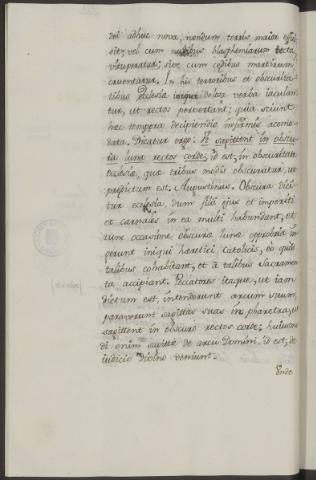 dei adhuc nova, nondum terris maior efful
sit; vel cum nubibus blasphemiarum tecta,
vituperatur; sive cum cedibus martirum,
cruentatur. In his terroribus et obscurita-
tibus Ecclesia iniqui dolosa verba iaculan-
tur, ut rectos pervertant; quia sciunt
hac tempora decipiendis infirmis acomo-
data. Dicatur ergo: Ut sagittent in obscu-
ra luna rectos corde; id est, in obscuritate
ecclesia, qua tribus modis obscuratur, ut
predictum est. Augustinus. Obscura dici-
tur ecclesia, dum filii ejus et imperiti
et carnales in ea multi habundant, et
tunc occasione obscura luna opprobria in
gerunt iniqui heretici, catolicis, eo quod
talibus cohabitant, et a talibus Sacramen
ta accipiant. Peccatores itaque, ut iam
dictum est, intenderunt arcum suum,
paraverunt sagittas suas in pharetra, ut
sagittent in obscuro rectos corde; huiusmo
di enim sagitte de arcu Domini, id est, de
iudicio divino veniunt.
Unde